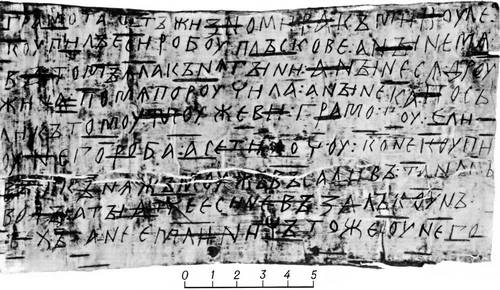 ГРАМОТА : ѾЪ ЖИЗНОМИРА : КЪ МИКОУЛЕ :
КОУПИЛЪ ЕСИ : РОБОУ : ПЛЪСКОВЕ : А НЫНЕ МѦ :
ВЪ ТОМЪ : ѦЛА КЪНѦГЫНИ : А НЫНЕ СѦ ДРОУ
ЖИНА : ПО МѦ ПОРОУЧИЛА : А НЫНЕ КА : ПОСЪ
ЛИ КЪ ТОМОУ : МОУЖЕВИ : ГРАМОТОУ : ЕЛИ
ОУ НЕГО РОБА : А СЕ ТИ ХОЧОУ : КОНЕ КОУПИ
ВЪ : И КЪНѦЖЪ МОУЖЪ ВЪСАДИВЪ : ТА НА СЪ
ВОДЫ : А ТЫ АТЧЕ ЕСИ НЕ ВЪЗАЛЪ КОУНЪ :
ТЕХЪ : А НЕ ЕМЛИ : НИЧЪТО ЖЕ ОУ НЕГО :
0 1 2 3 4 5